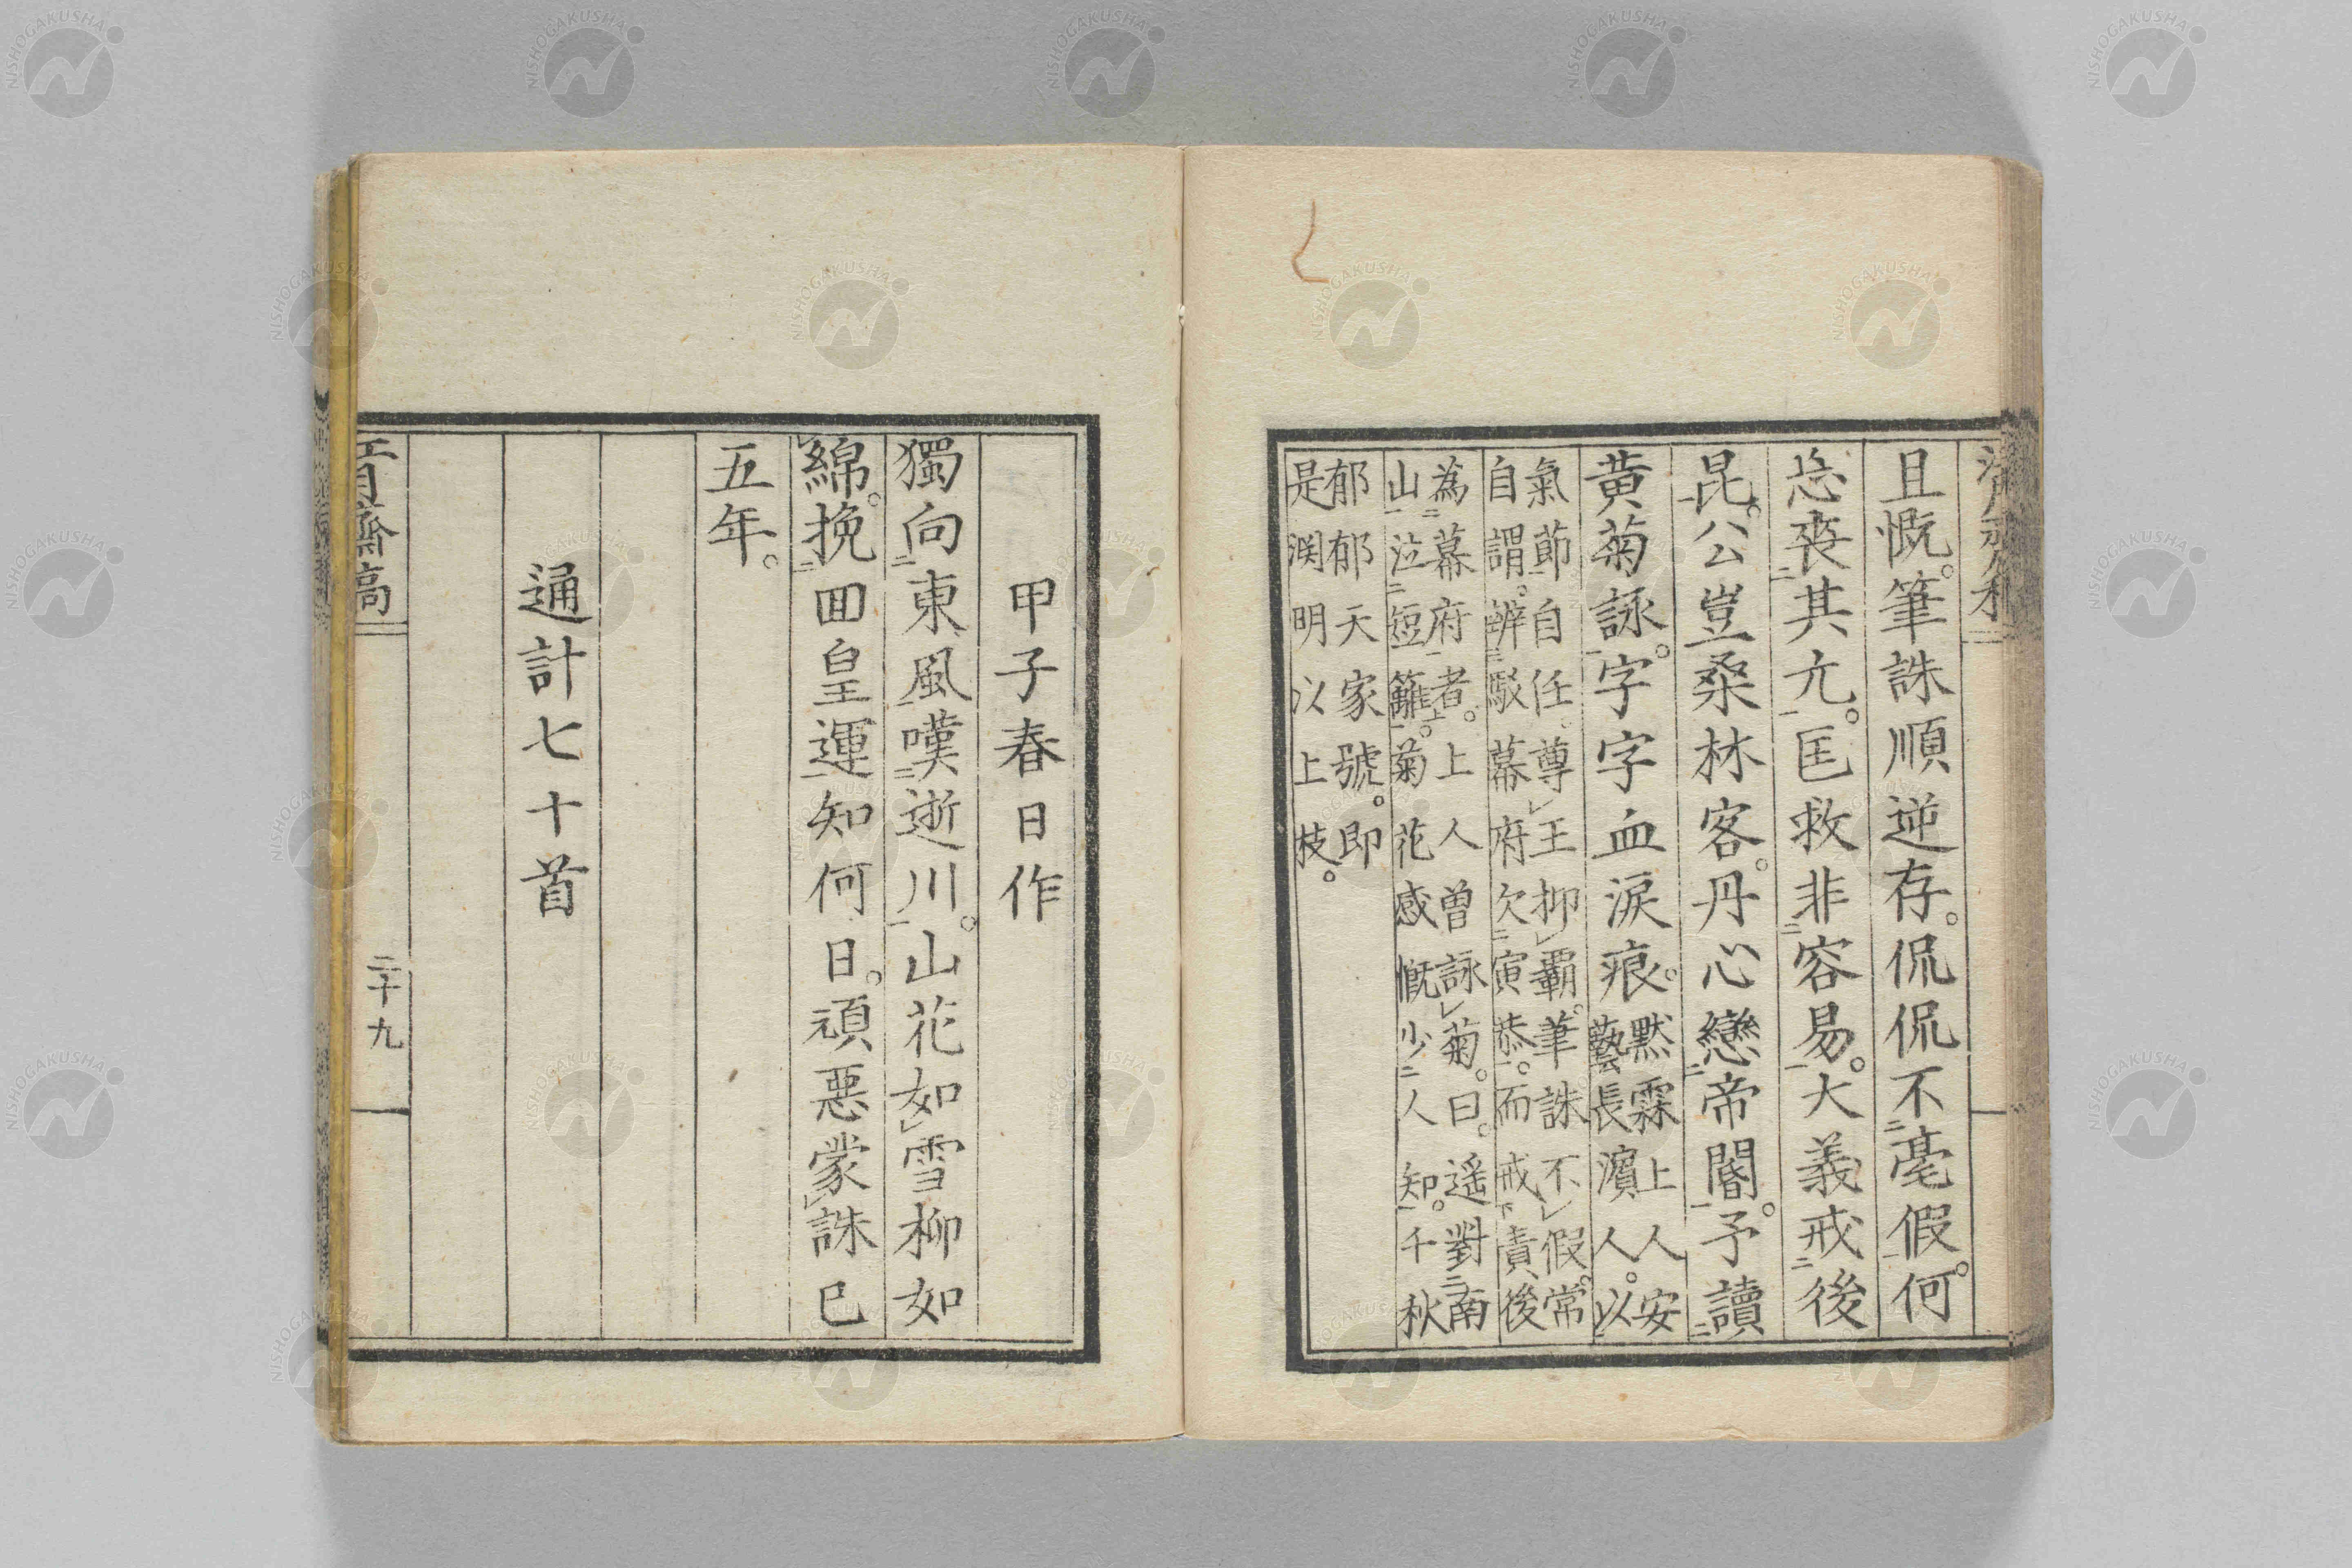 且慨。筆誅順逆存。侃侃不毫假。何
忘喪其元。匡救非容易。大義戒後
昆。公豈桑林客。丹心戀帝閽。予讀
黃菊詠。字字血淚痕。
默霖上人安
藝長濱人。以
氣節自任。尊王抑霸。筆誅不假。常
自謂。辨駁幕府欠寅恭。而戒責後
為幕府者。上人曾詠菊。曰。遥對南
山泣短籬。菊花感慨少人知。千秋
郁郁天家號。即
是渕明以上枝。
甲子春日作
獨向東風嘆逝川。山花如雪柳如
綿。挽回皇運知何日。頑惡蒙誅已
五年。
通計七十首
齋稿
二十九